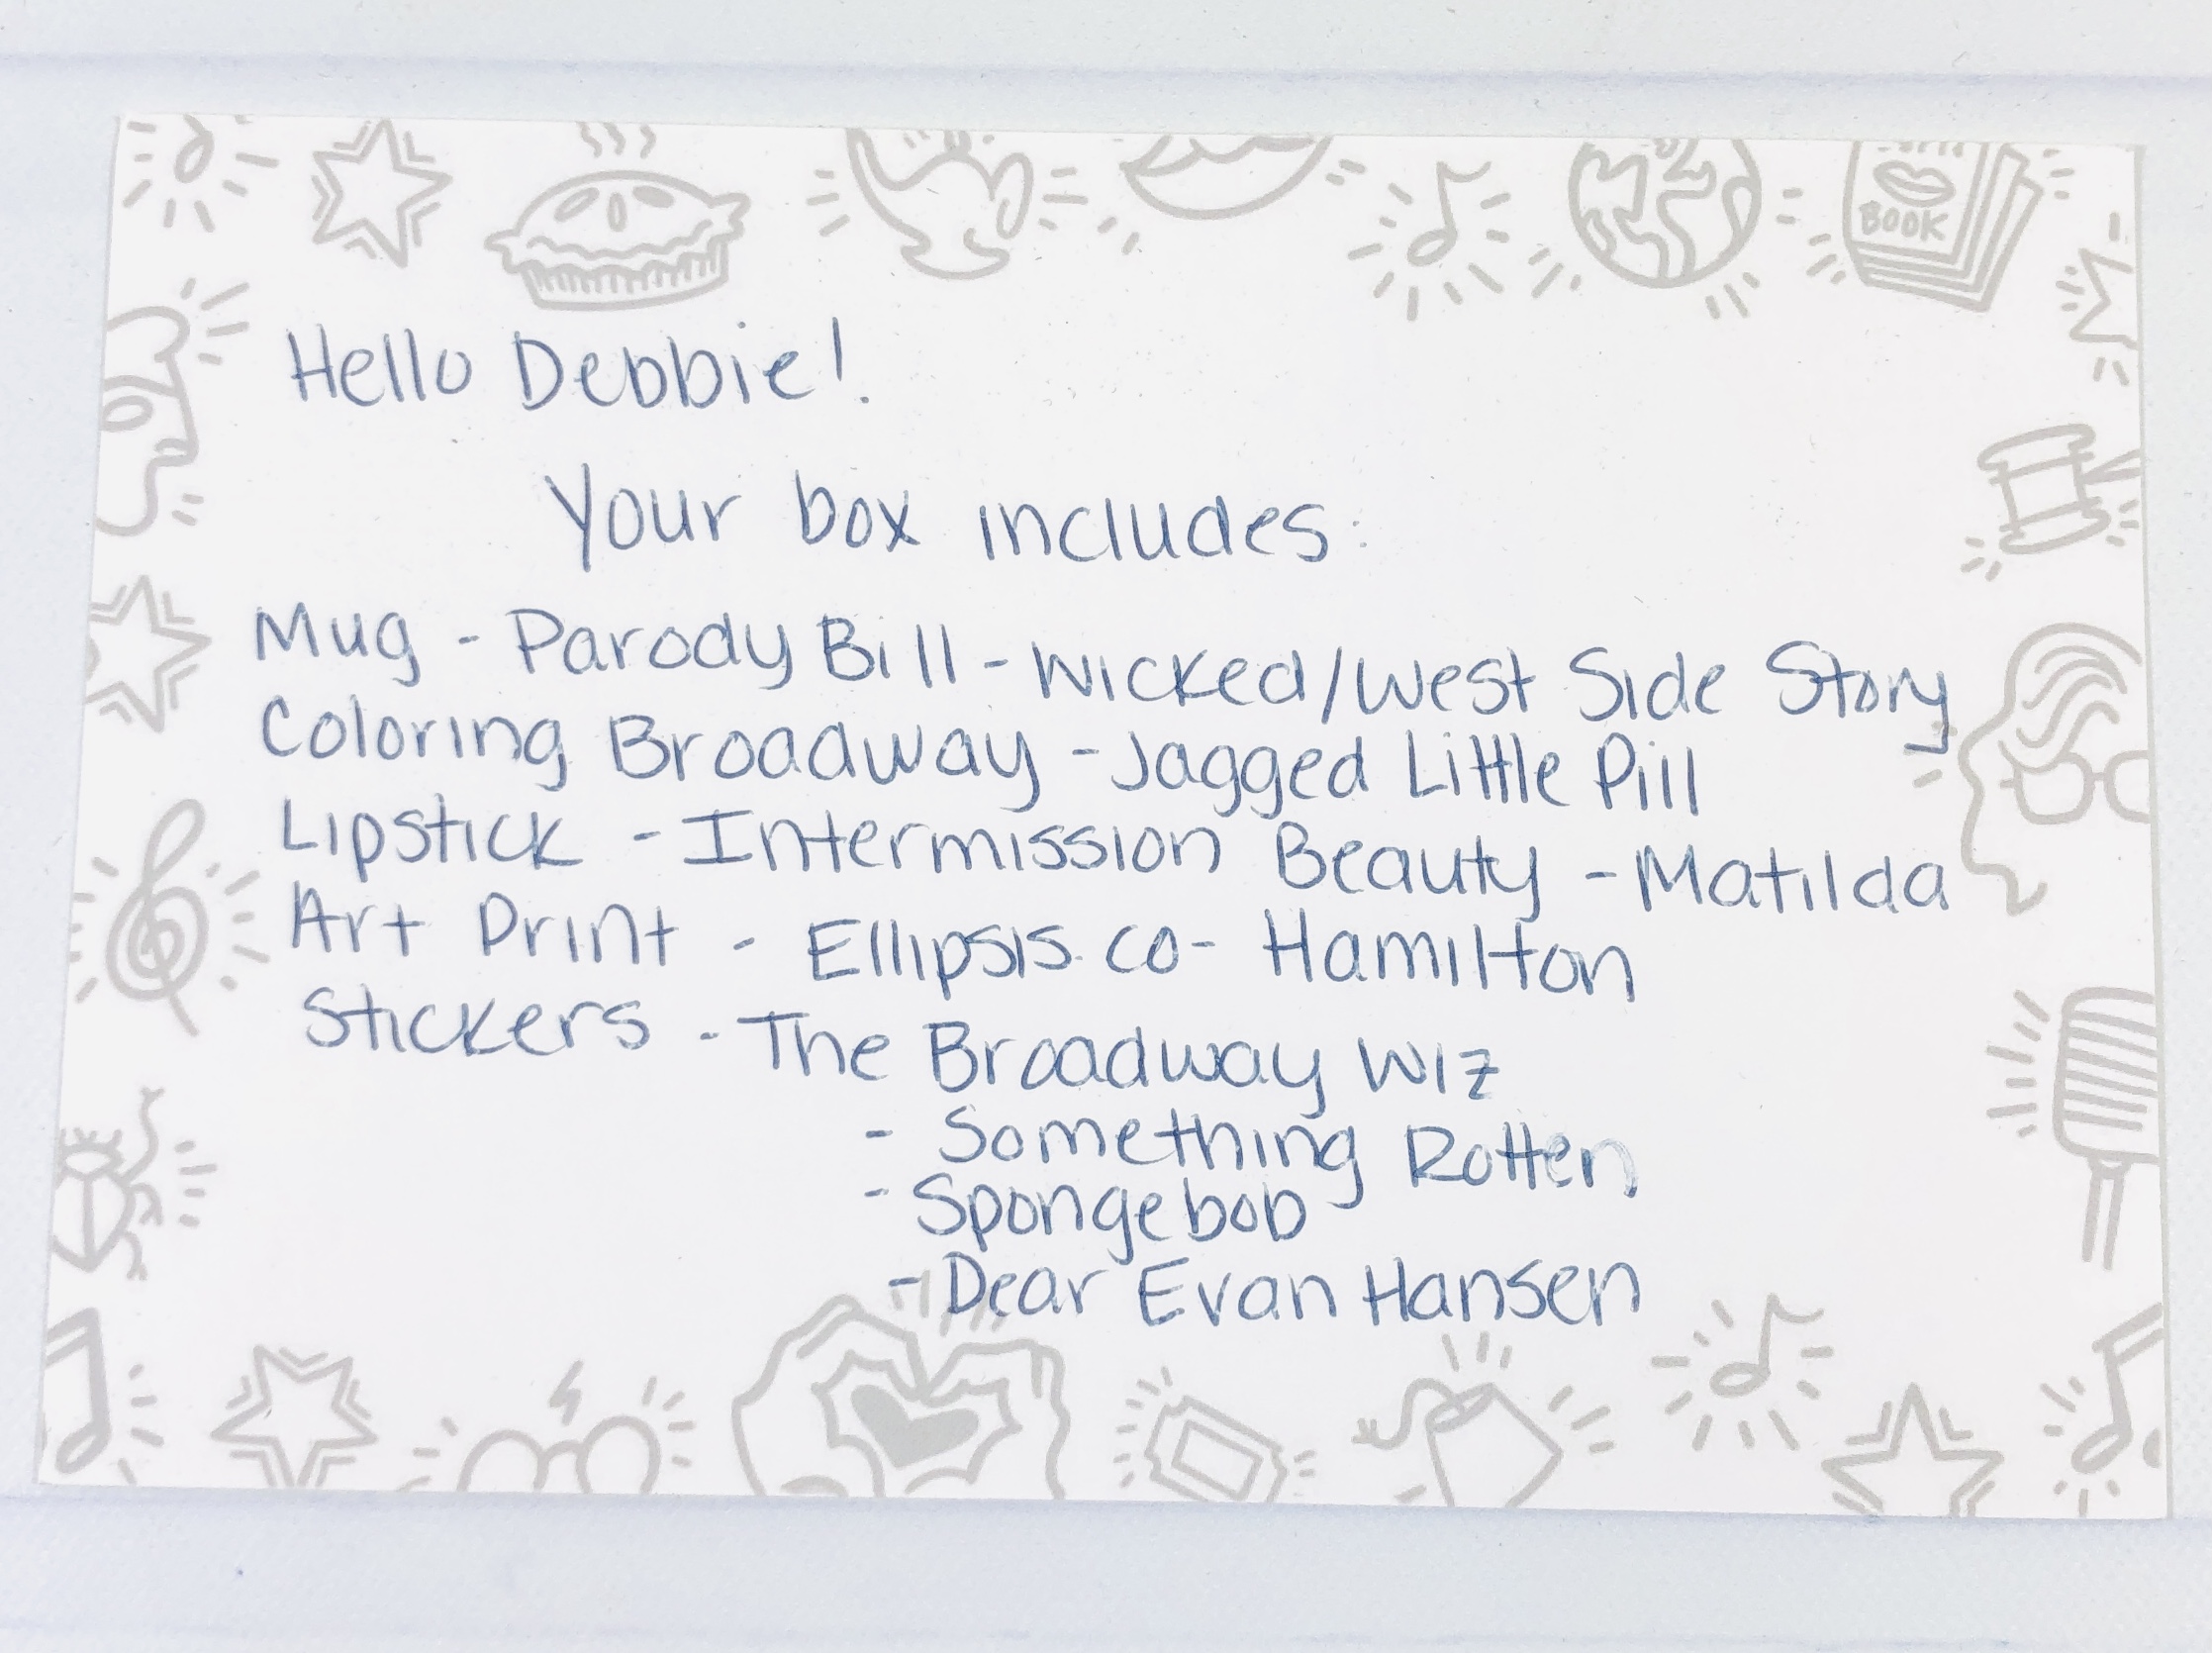 BOOK
Hello Debbie!
Your box includes:
Mug - Parody Bill - Wicked/West Side Story
Coloring Broadway - Jagged Little Pill
Lipstick - Intermission Beauty - Matilda
Art Print - Ellipsis.co - Hamilton
Stickers - The Broadway Wiz
- Something Rotten
- Spongebob
- Dear Evan Hansen